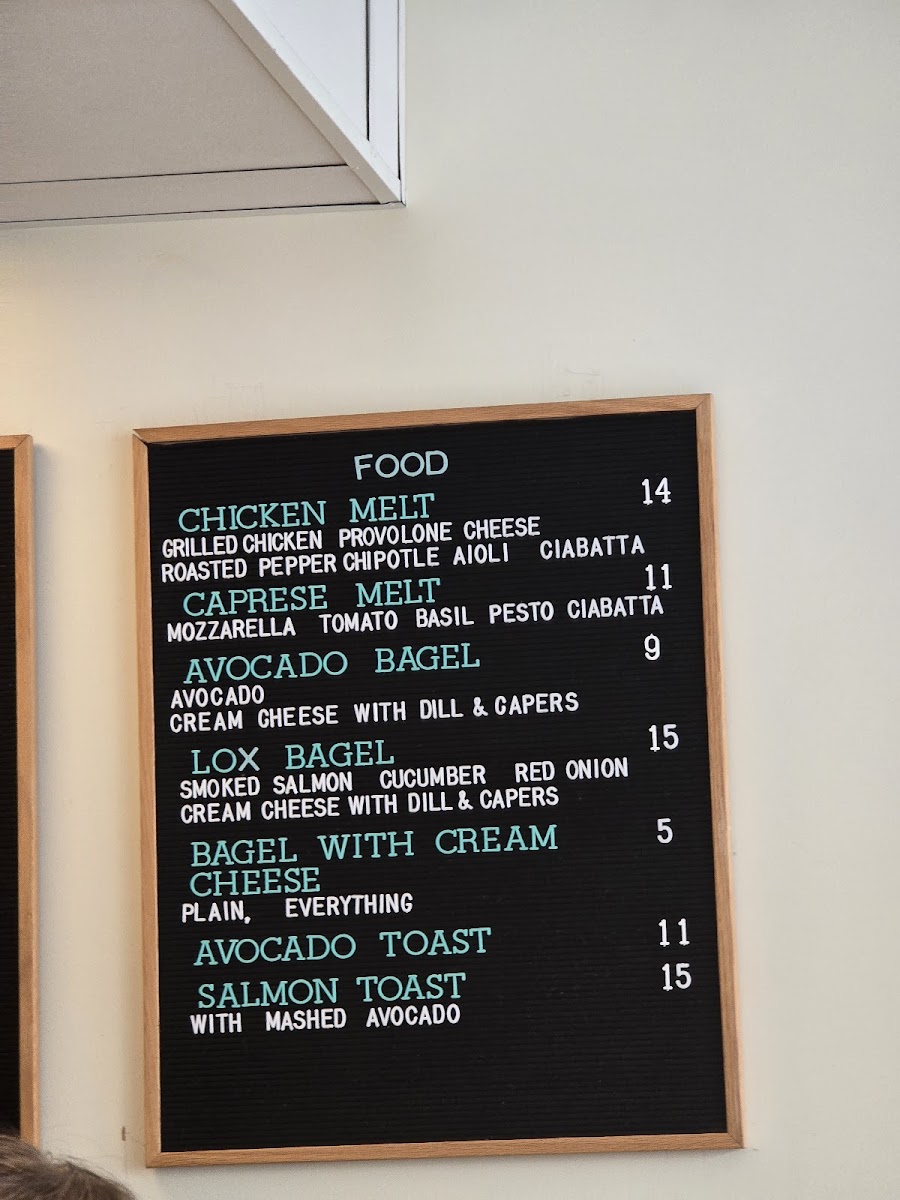 FOOD
CHICKEN MELT 14
GRILLED CHICKEN PROVOLONE CHEESE
ROASTED PEPPER CHIPOTLE AIOLI CIABATTA
CAPRESE MELT 11
MOZZARELLA TOMATO BASIL PESTO CIABATTA
AVOCADO BAGEL 9
AVOCADO
CREAM CHEESE WITH DILL & CAPERS
LOX BAGEL 15
SMOKED SALMON CUCUMBER RED ONION
CREAM CHEESE WITH DILL & CAPERS
BAGEL WITH CREAM 5
CHEESE
PLAIN, EVERYTHING
AVOCADO TOAST 11
SALMON TOAST 15
WITH MASHED AVOCADO